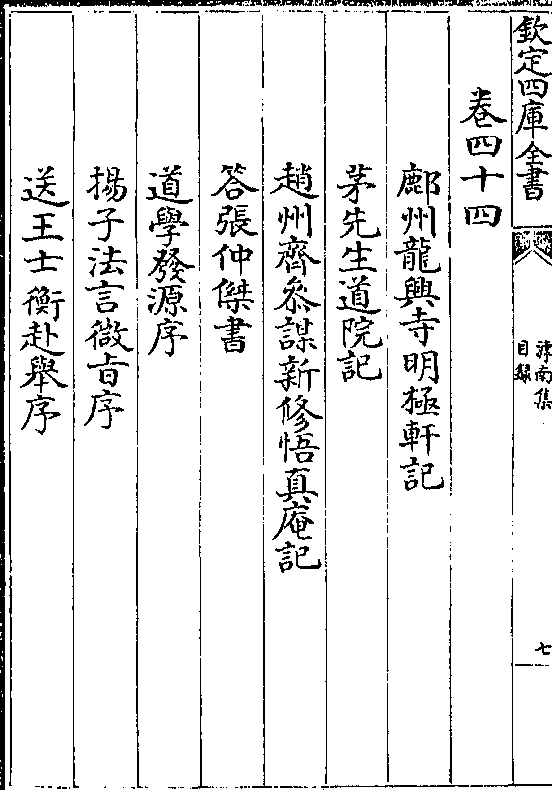 欽定四庫全書
滹南集
目錄
七
卷四十四
鄜州龍興寺明極軒記
茅先生道院記
趙州齊叅謀新修悟真庵記
答張仲傑書
道學發源序
揚子法言微旨序
送王士衡赴舉序